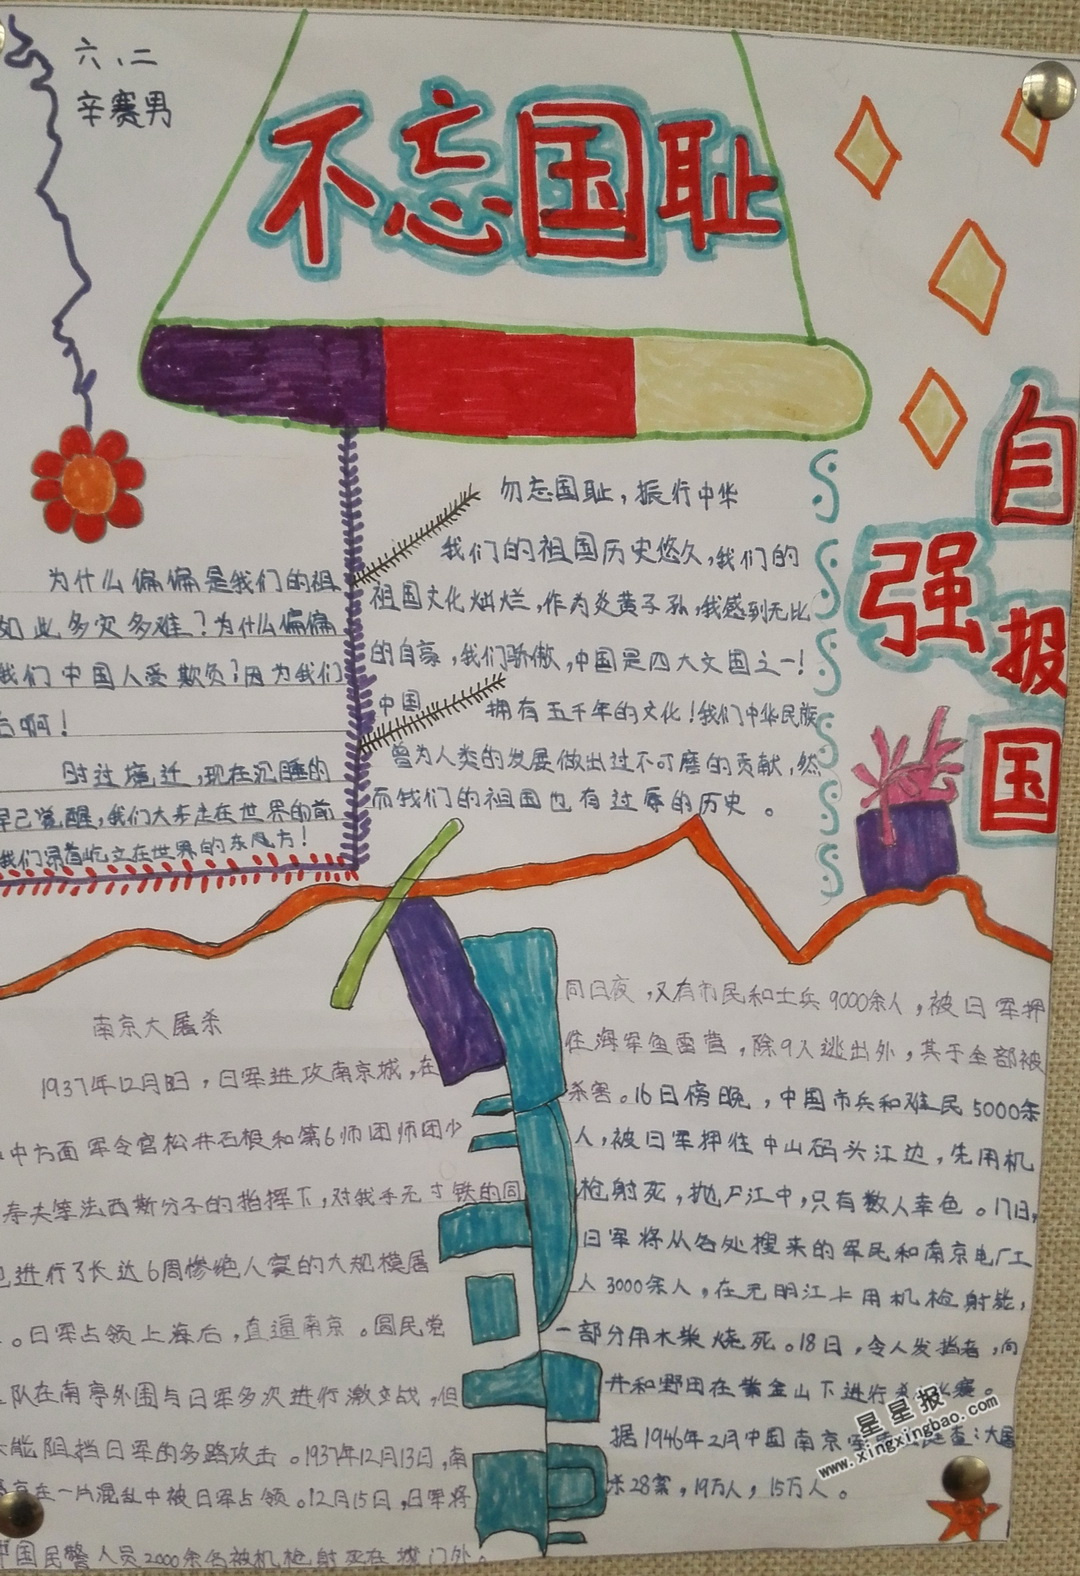 六、二
辛赛男
不忘国耻
自强报国
为什么偏偏是我们的祖
如此多灾多难?为什么偏偏
我们中国人受欺负?因为我们
后啊!
时过境迁,现在沉睡的
早已觉醒,我们大步走在世界的前
我们昂首屹立在世界的东方!
勿忘国耻,振行中华
我们的祖国历史悠久,我们的
祖国文化灿烂,作为炎黄子孙,我感到无比
的自豪,我们骄傲,中国是四大文国之一!
中国 拥有五千年的文化!我们中华民族
曾为人类的发展做出过不可磨的贡献,然
而我们的祖国也有过辱的历史。
南京大屠杀
1937年12月,日军进攻南京城,在
中方面军令官松井石根和第6师团师团
寿夫等法西斯分子的指挥下,对我手无寸铁的同
进行了长达6周惨绝人寰的大规模屠
。日军占领上海后,直逼南京。国民党
队在南京外围与日军多次进行激战,但
能阻挡日军的多路攻击。1937年12月13日,南
京在一片混乱中被日军占领。12月15日,日军将
中国民警人员2000余名被机枪射死在城门外。
同日夜,又有市民和士兵9000余人,被日军押
往海军鱼雷营,除9人逃出外,其于全部被
杀害。16日傍晚,中国市兵和难民5000余
人,被日军押往中山码头江边,先用机
枪射死,抛尸江中,只有数人幸色。17日,
日军将从各处搜来的军民和南京电厂工
人3000余人,在江上用机枪射毙,
一部分用木柴烧死。18日,令人发,向
井和野田在黄金山下进行杀赛。
据1946年2月中国南京查:大屠
杀28案,19万人,15万人。
星星报
www.xingxingbao.com